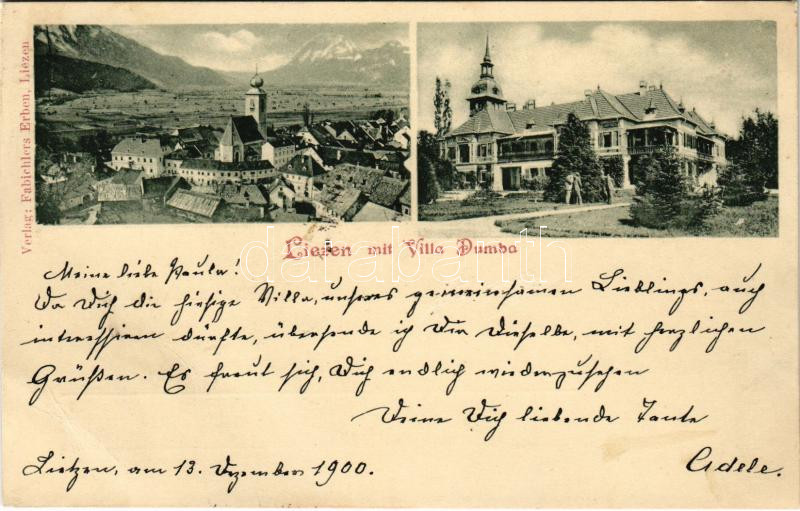 Verlag: Fabichlers Erben, Liezen
Liezen mit Villa Dumba
Meine liebe Paula!
Da Dich die hiesige Villa, unseres gemeinsamen Lieblings, auch
interessiren dürfte, übersende ich Dir dieselbe, mit herzlichen
Grüßen. Es freut sich, Dich endlich wiederzusehen
Deine Dich liebende Tante
Adele.
Lietzen, am 13. Dezember 1900.
darabanth